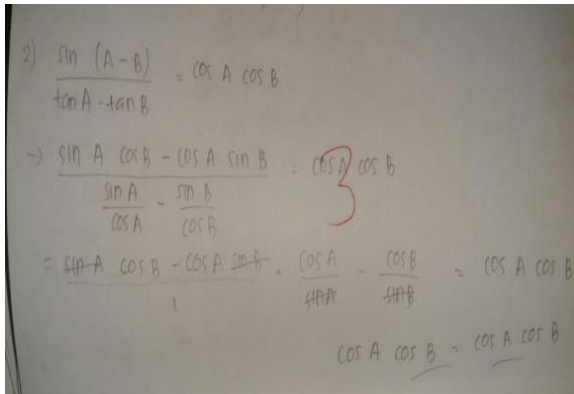 2) sin (A - B) / tan A - tan B = cos A cos B
→ sin A cos B - cos A sin B / sin A / cos A - sin B / cos B = cos A cos B
3
= sin A cos B - cos A sin B / 1 · cos A / sin A - cos B / sin B = cos A cos B
cos A cos B = cos A cos B